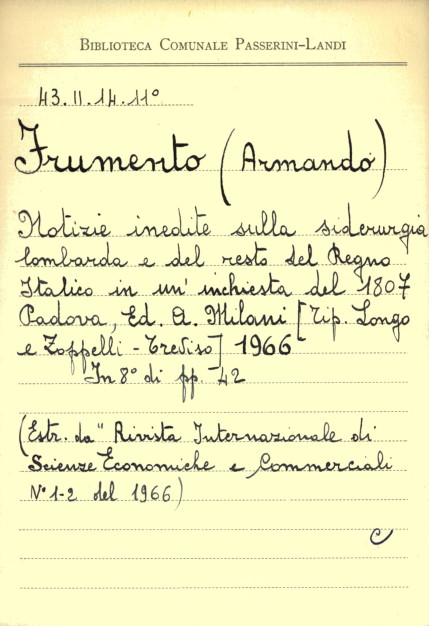 BIBLIOTECA COMUNALE PASSERINI-LANDI
43.II.14.11°
Frumento (Armando)
Notizie inedite sulla siderurgia
lombarda e del resto del Regno
Italico in un' inchiesta del 1807
Padova, Ed. A. Milani [Tip. Longo
e Zoppelli - Treviso] 1966
In 8° di pp. 42
(Estr. da "Rivista Internazionale di
Scienze Economiche e Commerciali
N° 1-2 del 1966)
C